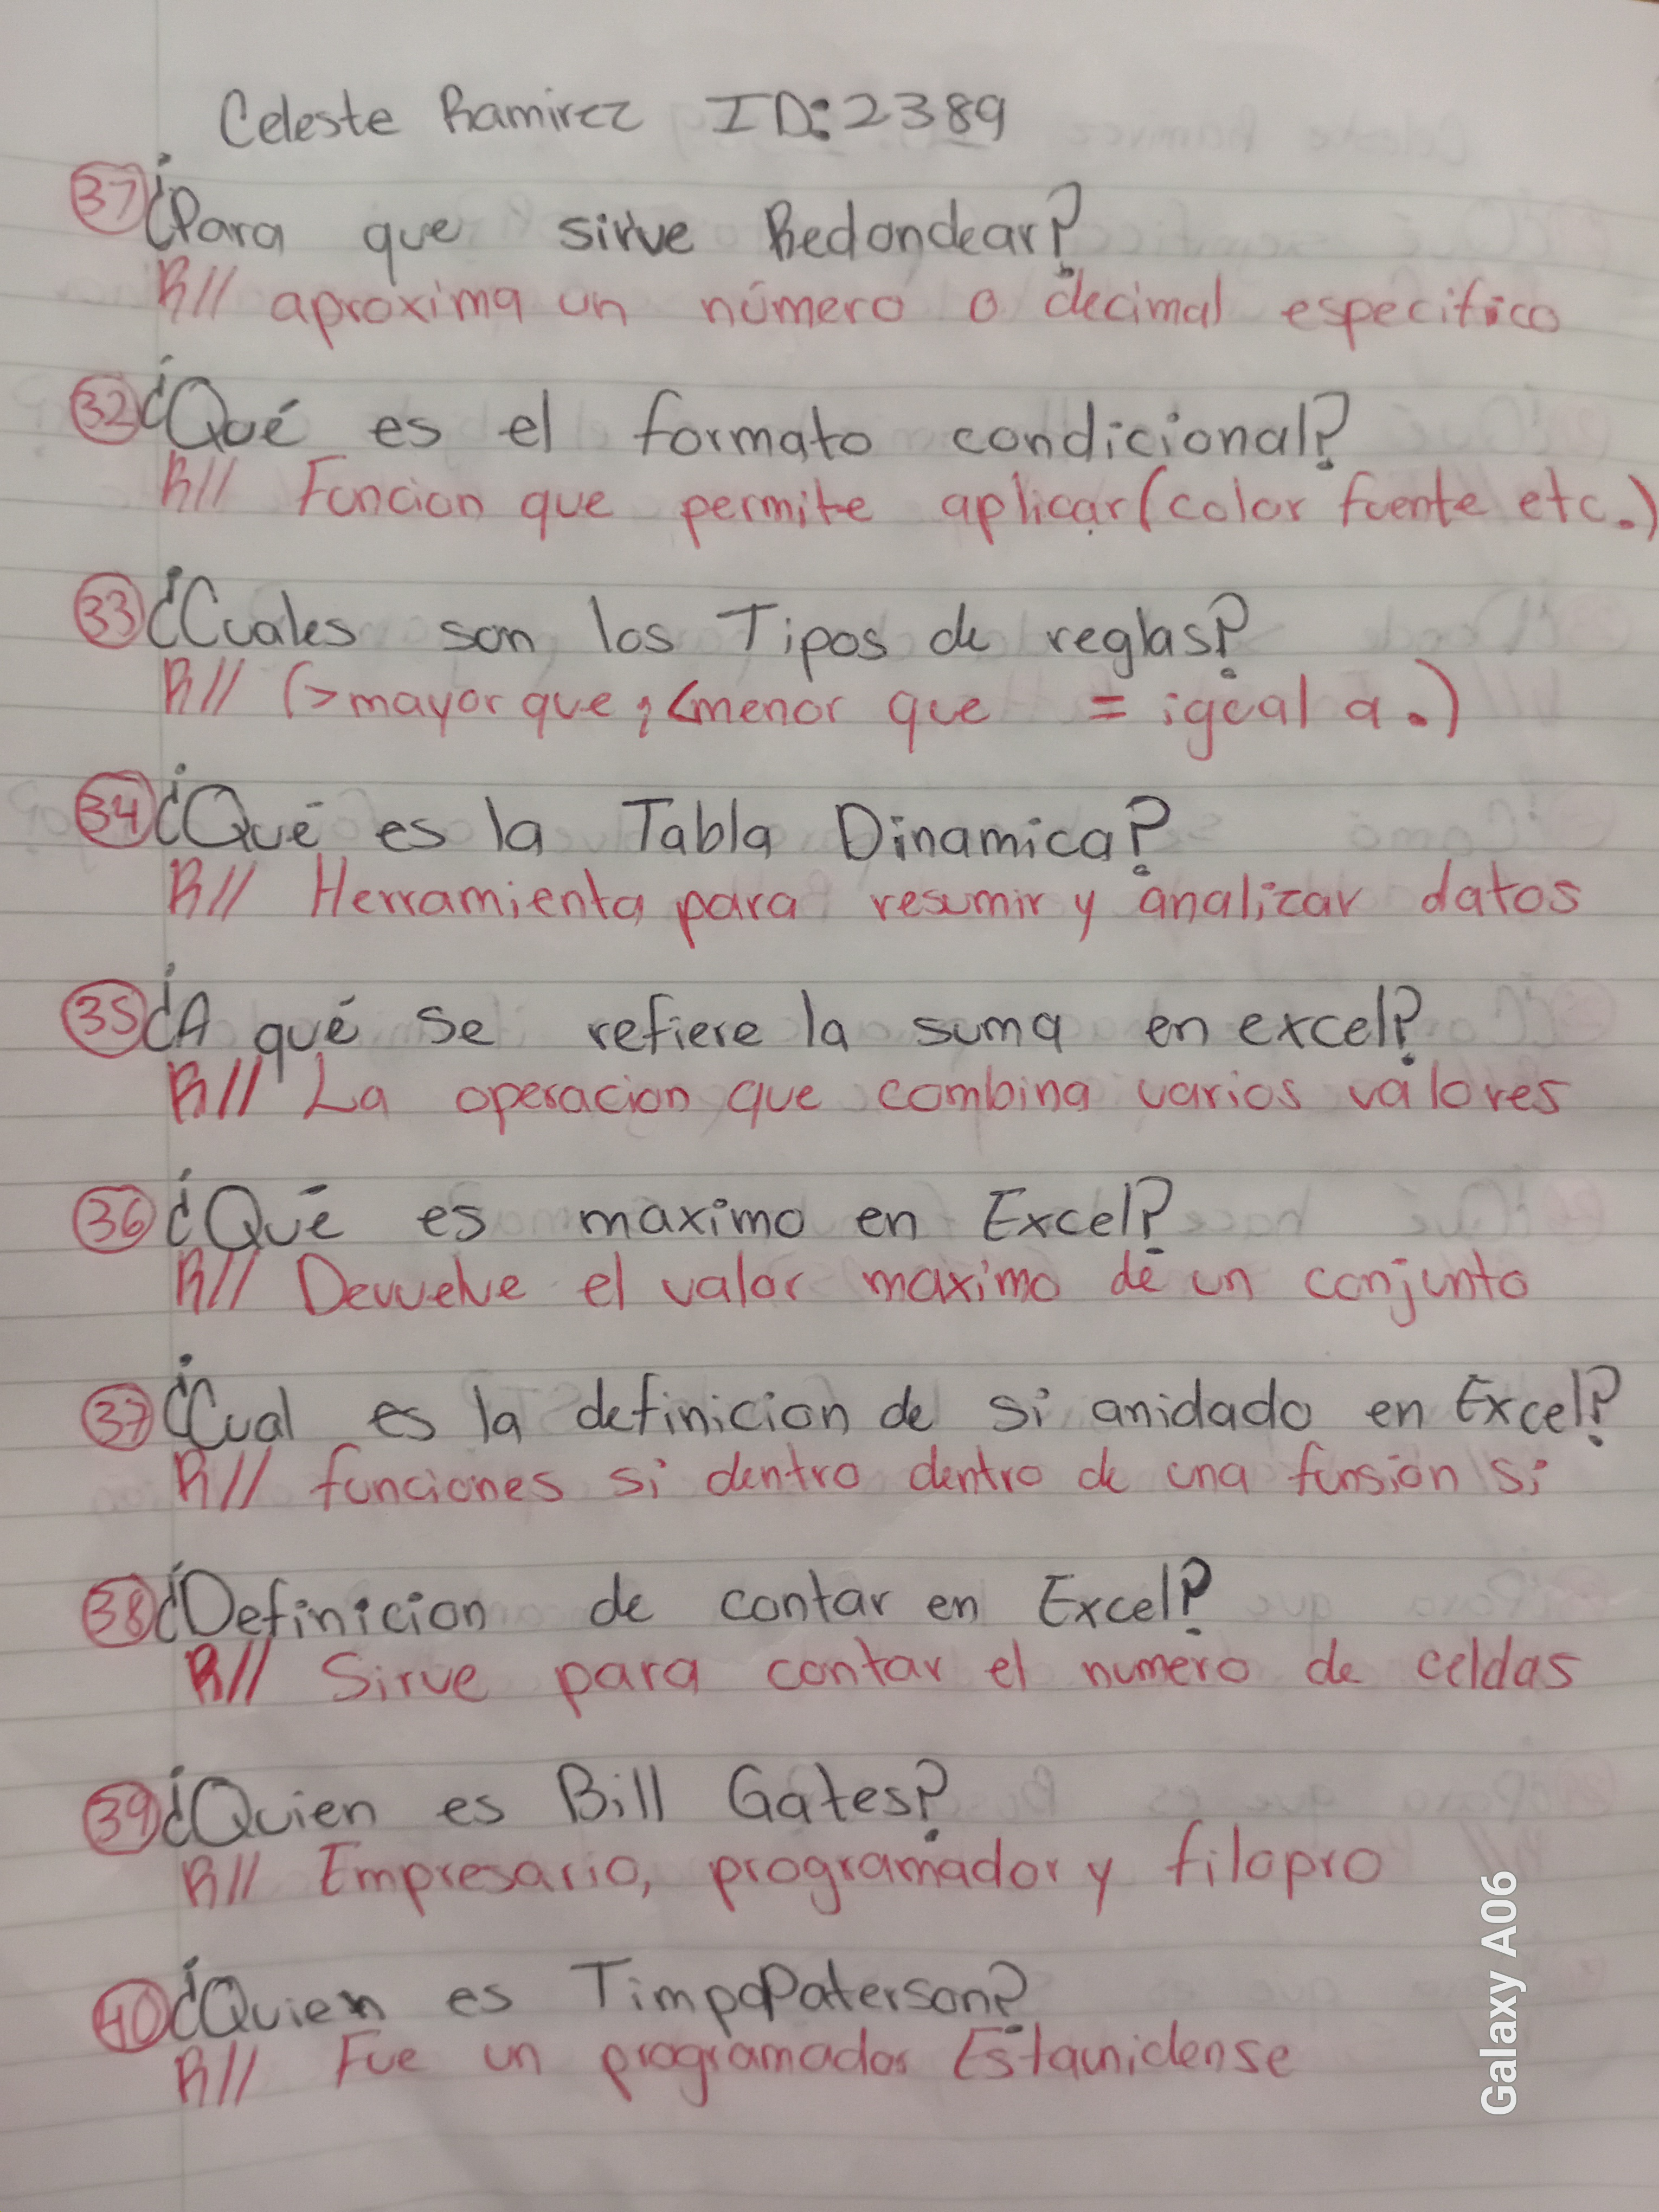 Celeste Ramirez ID: 2389
37 ¿Para que sirve Redondear?
R// aproxima un número o decimal especifico
32 ¿Qué es el formato condicional?
R// Funcion que permite aplicar (color fuente etc.)
33 ¿Cuales son los Tipos de reglas?
R// (>mayor que, <menor que = igual a.)
34 ¿Qué es la Tabla Dinamica?
R// Herramienta para resumir y analizar datos
35 ¿A qué se refiere la suma en excel?
R// La operacion que combina varios valores
36 ¿Qué es maximo en Excel?
R// Devuelve el valor maximo de un conjunto
37 ¿Cual es la definicion de si anidado en Excel?
R// funciones si dentro dentro de una funsión si
38 ¿Definicion de contar en Excel?
R// Sirve para contar el numero de celdas
39 ¿Quien es Bill Gates?
R// Empresario, programador y filopro
40 ¿Quien es Timpo Paterson?
R// Fue un programador Estaunidense
Galaxy A06